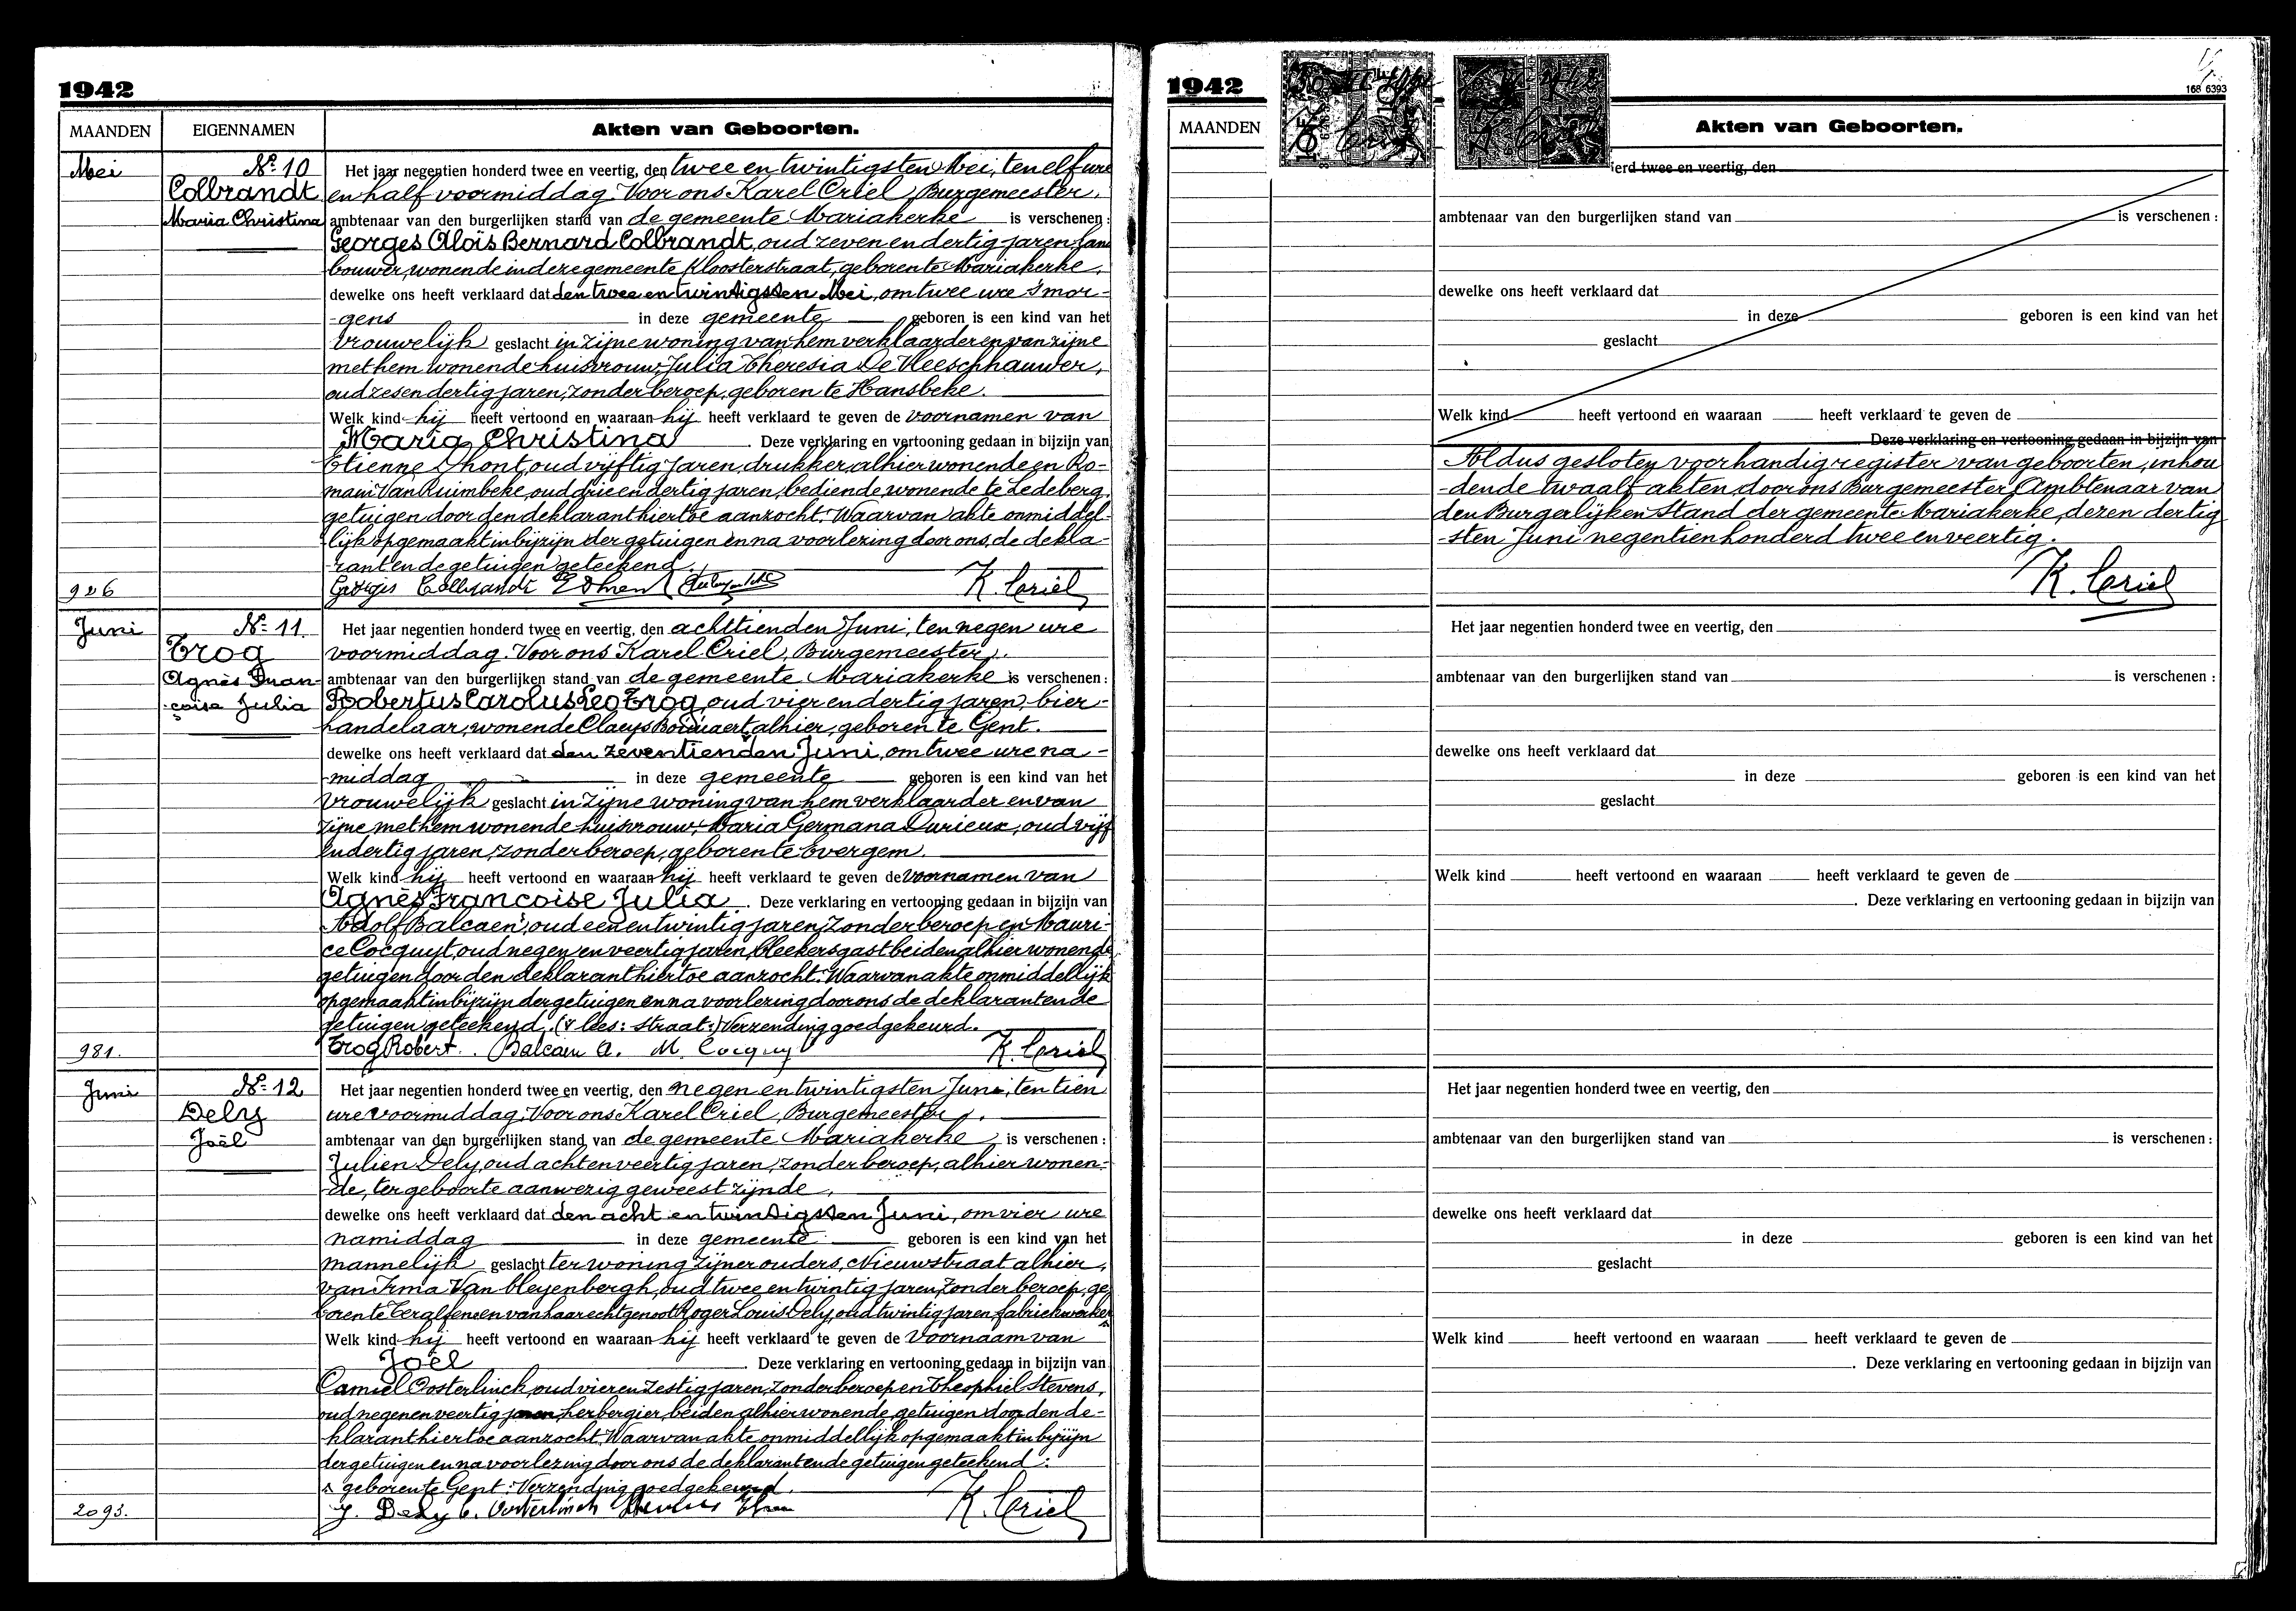 1942
MAANDEN EIGENNAMEN Akten van Geboorten.
Mei Nr. 10 Het jaar negentien honderd twee en veertig, den twee en twintigsten Mei, ten elf ure
Colbrandt en half voormiddag. Voor ons Karel Criel, Burgemeester,
Maria Christina ambtenaar van den burgerlijken stand van de gemeente Mariakerke is verschenen:
Georges Aloïs Bernard Colbrandt, oud zeven en dertig jaren, land
bouwer, wonende in deze gemeente Kloosterstraat, geboren te Mariakerke,
dewelke ons heeft verklaard dat den twee en twintigsten Mei, om twee ure 's mor-
-gens in deze gemeente geboren is een kind van het
vrouwelijk geslacht in zijne woning van hem verklaarder en van zijne
met hem wonende huisvrouw, Julia Theresia De Vleeschhauwer,
oud zes en dertig jaren, zonder beroep, geboren te Hansbeke.
Welk kind hij heeft vertoond en waaraan hij heeft verklaard te geven de voornamen van
Maria Christina. Deze verklaring en vertooning gedaan in bijzijn van
Etienne Dhont, oud vijftig jaren, drukker, alhier wonende en Ro-
main Van Ruimbeke, oud drie en dertig jaren, bediende, wonende te Ledeberg,
getuigen door den deklarant hiertoe aanzocht. Waarvan akte onmiddel-
lijk opgemaakt in bijzijn der getuigen en na voorlezing door ons, de dekla-
rant en de getuigen geteekend.
926 Georges Colbrandt E Dhont K. Criel
Juni Nr. 11. Het jaar negentien honderd twee en veertig, den achttienden Juni, ten negen ure
Trog voormiddag. Voor ons Karel Criel, Burgemeester,
Agnès Fran- ambtenaar van den burgerlijken stand van de gemeente Mariakerke is verschenen:
çoise Julia Robertus Carolus Leo Trog, oud vier en dertig jaren, bier-
handelaar, wonende Claeys Boùùaert alhier, geboren te Gent.
dewelke ons heeft verklaard dat den zeventienden Juni, om twee ure na-
-middag in deze gemeente geboren is een kind van het
vrouwelijk geslacht in zijne woning van hem verklaarder en van
zijne met hem wonende huisvrouw, Maria Germana Durieux, oud vijf
en dertig jaren, zonder beroep, geboren te Evergem.
Welk kind hij heeft vertoond en waaraan hij heeft verklaard te geven de voornamen van
Agnès Françoise Julia. Deze verklaring en vertooning gedaan in bijzijn van
Adolf Balcaen, oud een en twintig jaren, zonder beroep en Mauri-
ce Cocquyt, oud negen en veertig jaren, bleekersgast beiden alhier wonende
getuigen door den deklarant hiertoe aanzocht. Waarvan akte onmiddellijk
opgemaakt in bijzijn der getuigen en na voorlezing door ons de deklarant en de
getuigen geteekend. (x lees: straat:) Verzending goedgekeurd.
981. Trog Robert. Balcaen A. M. Cocquy K. Criel
Juni Nr. 12 Het jaar negentien honderd twee en veertig, den negen en twintigsten Juni, ten tien
Dely ure voormiddag. Voor ons Karel Criel, Burgemeester,
Joël ambtenaar van den burgerlijken stand van de gemeente Mariakerke is verschenen:
Julien Dely, oud acht en veertig jaren, zonder beroep, alhier wonen-
-de, ter geboorte aanwezig geweest zijnde,
dewelke ons heeft verklaard dat den acht en twintigsten Juni, om vier ure
namiddag in deze gemeente geboren is een kind van het
mannelijk geslacht ter woning zijner ouders, Nieuwstraat alhier,
van Irma Van bleyenbergh, oud twee en twintig jaren, zonder beroep, ge
boren te Teralfene en van haar echtgenoot Roger Louis Dely, oud twintig jaren, fabriekwerker
Welk kind hij heeft vertoond en waaraan hij heeft verklaard te geven de voornaam van
Joël. Deze verklaring en vertooning gedaan in bijzijn van
Camiel Oosterlinck, oud vier en zestig jaren, zonder beroep en Theophiel Stevens,
oud negen en veertig jaren, herbergier, beiden alhier wonende, getuigen door den de-
klarant hiertoe aanzocht. Waarvan akte onmiddellijk opgemaakt in bijzijn
der getuigen en na voorlezing door ons de deklarant en de getuigen geteekend:
x geboren te Gent. Verzending goedgekeurd.
2093. J. Dely C. Oosterlinck Stevens K. Criel
1942
168 6393
MAANDEN Akten van Geboorten.
erd twee en veertig, den
ambtenaar van den burgerlijken stand van is verschenen:
dewelke ons heeft verklaard dat
in deze geboren is een kind van het
geslacht
Welk kind heeft vertoond en waaraan heeft verklaard te geven de
Deze verklaring en vertooning gedaan in bijzijn van
Aldus gesloten voorhandig register van geboorten, inhou
-dende twaalf akten, door ons Burgemeester, Ambtenaar van
den Burgerlijken Stand der gemeente Mariakerke, dezen dertig
-sten Juni negentienhonderd twee en veertig.
K. Criel
Het jaar negentien honderd twee en veertig, den
ambtenaar van den burgerlijken stand van is verschenen:
dewelke ons heeft verklaard dat
in deze geboren is een kind van het
geslacht
Welk kind heeft vertoond en waaraan heeft verklaard te geven de
. Deze verklaring en vertooning gedaan in bijzijn van
Het jaar negentien honderd twee en veertig, den
ambtenaar van den burgerlijken stand van is verschenen:
dewelke ons heeft verklaard dat
in deze geboren is een kind van het
geslacht
Welk kind heeft vertoond en waaraan heeft verklaard te geven de
. Deze verklaring en vertooning gedaan in bijzijn van